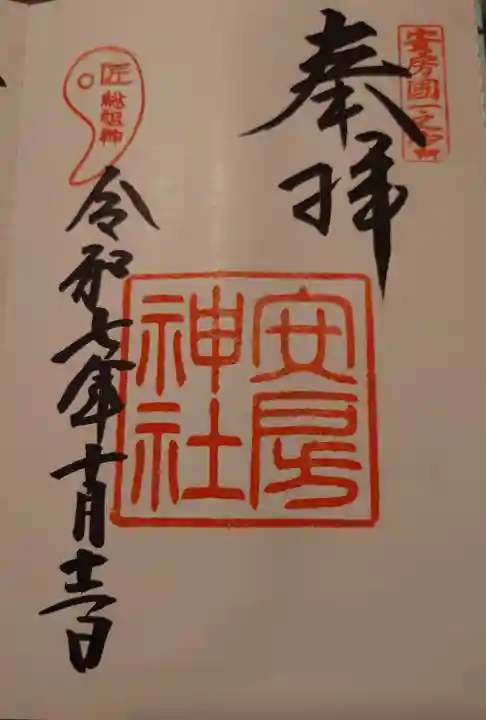 安房國一之宮
奉拝
安房
神社
匠
総祖神
令和七年十月十二日